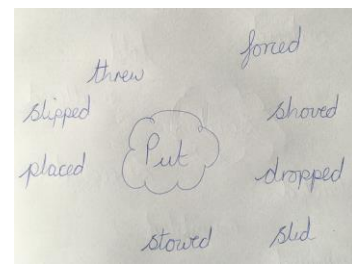 forced
threw
slipped
shoved
Put
placed
dropped
stowed
slid